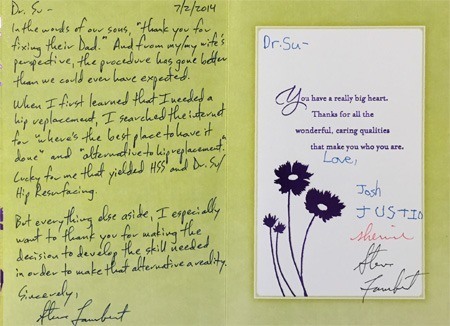 Dr. Su - 7/2/2014
In the words of our sons, "thank you for
fixing their Dad." And from my/my wife's
perspective, the procedure has gone better
than we could ever have expected.
When I first learned that I needed a
hip replacement, I searched the internet
for "where's the best place to have it
done" and "alternative to hip replacement."
Lucky for me that yielded HSS and Dr. Su/
Hip Resurfacing.
But everything else aside, I especially
want to thank you for making the
decision to develop the skill needed
in order to make that alternative a reality.
Sincerely,
Steve Lambert
Dr. Su -
You have a really big heart.
Thanks for all the
wonderful, caring qualities
that make you who you are.
Love,
Josh
JUSTIN
Sherrie
Steve
Lambert